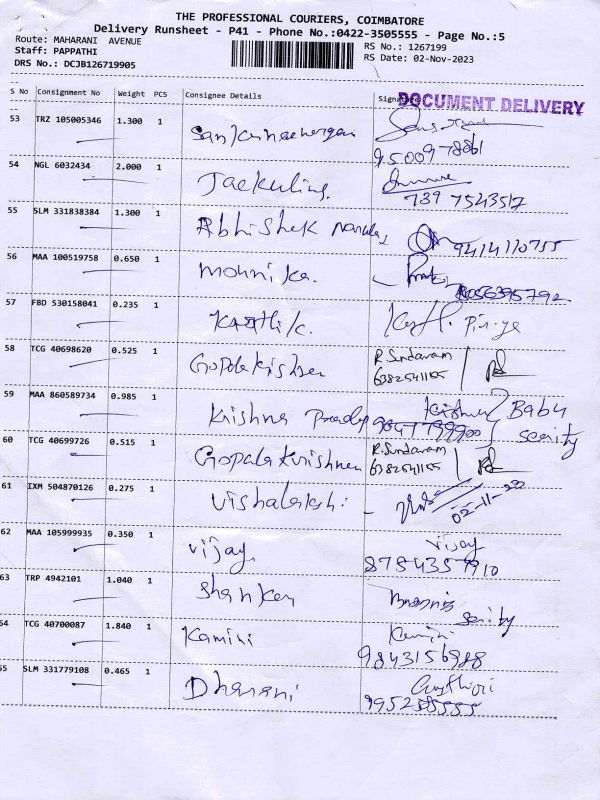 THE PROFESSIONAL COURIERS, COIMBATORE
Delivery Runsheet - P41 - Phone No.:0422-3505555 - Page No.:5
Route: MAHARANI AVENUE
RS No.: 1267199
Staff: PAPPATHI
RS Date: 02-Nov-2023
DRS No.: DCJB126719905
S No Consignment No Weight PCS Consignee Details Signature
DOCUMENT DELIVERY
53 TRZ 105005346 1.300 1
9500978861
54 NGL 6032434 2.000 1 Jackuline
739 7543517
55 SLM 331838384 1.300 1 Abhishek
9414110755
56 MAA 100519758 0.650 1 Mounika.
8056395792
57 FBD 530158041 0.235 1 Karthik.
58 TCG 40698620 0.525 1 Gopalakrishnan R. Sundaram
6382541155
59 MAA 860589734 0.985 1 Krishna Babu
60 TCG 40699726 0.515 1 Gopalakrishnan R. Sundaram
6382541155
61 IXM 504870126 0.275 1 Vishalakshi
62 MAA 105999935 0.350 1 Vijay. Vijay
8754357910
63 TRP 4942101 1.040 1 Shanker
64 TCG 40700087 1.840 1 Kamini Kamini
9843156988
55 SLM 331779108 0.465 1 Dharani